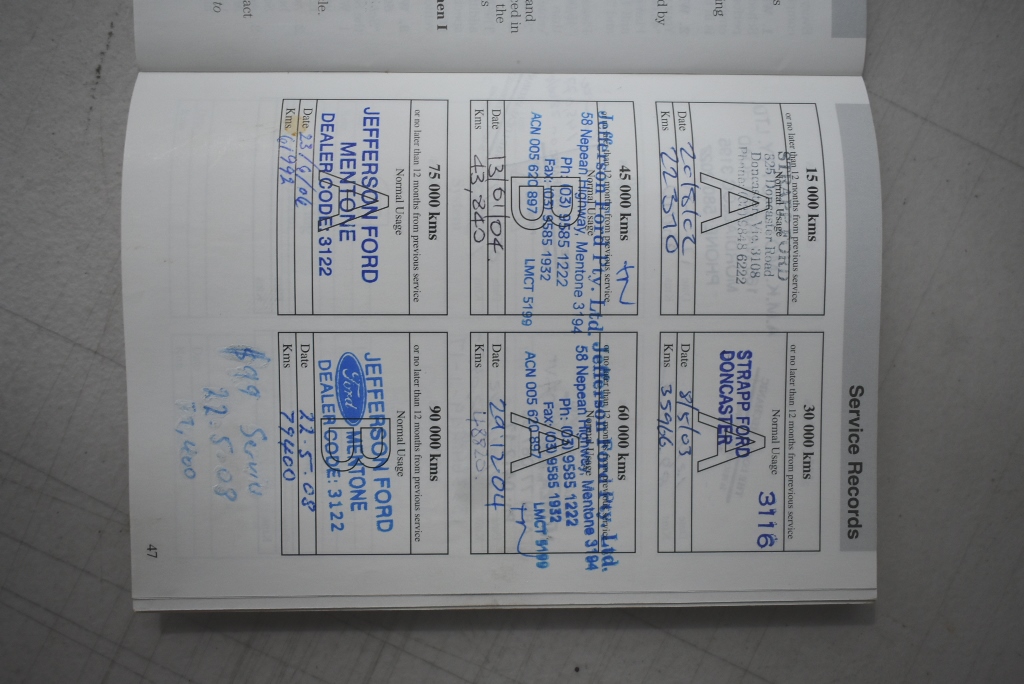 Service Records
15 000 kms
or no later than 12 months from previous service
Normal Usage
STRAPP FORD
525 Doncaster Road
Doncaster Vic, 3108
A
Date 20/5/02
Kms 22370
30 000 kms
or no later than 12 months from previous service
Normal Usage
3116
STRAPP FORD
DONCASTER
A
Date 8/5/03
Kms 35966
45 000 kms
or no later than 12 months from previous service
Normal Usage
Jefferson Ford Pty. Ltd.
58 Nepean Highway, Mentone 3194
Ph: (03) 9585 1222
Fax: (03) 9585 1932
ACN 005 620 897 LMCT 5199
B
Date 13/01/04
Kms 43,240
60 000 kms
or no later than 12 months from previous service
Normal Usage
Jefferson Ford Pty. Ltd.
58 Nepean Highway, Mentone 3194
Ph: (03) 9585 1222
Fax: (03) 9585 1932
ACN 005 620 897 LMCT 5199
A
Date 29 12 04
Kms
75 000 kms
or no later than 12 months from previous service
Normal Usage
JEFFERSON FORD
MENTONE
DEALER CODE: 3122
A
Date 23/6/06
Kms 61992
90 000 kms
or no later than 12 months from previous service
Normal Usage
JEFFERSON FORD
Ford MENTONE
DEALER CODE: 3122
Date 22.5.08
Kms 79400
$99 Service
22.5.08
47